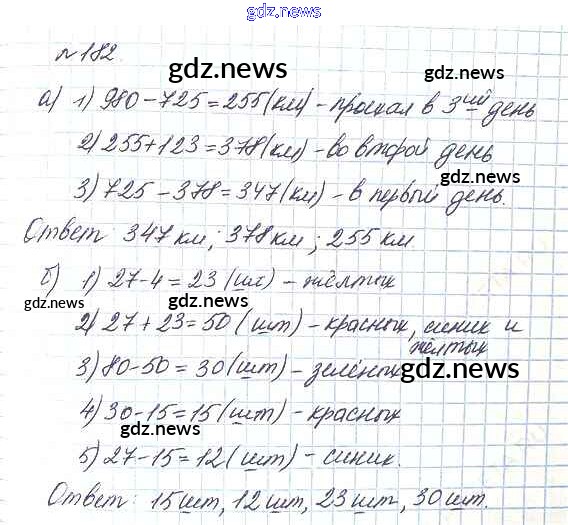 gdz.news
gdz.news
№ 182.
gdz.news
а) 1) 980 – 725 = 255 (км) – проехал в 3ий день
gdz.news
2) 255 + 123 = 378 (км) – во второй день
gdz.news
3) 725 – 378 = 347 (км) – в первый день.
Ответ: 347 км; 378 км; 255 км.
gdz.news
б) 1) 27 – 4 = 23 (шт) – жёлтых
gdz.news gdz.news
2) 27 + 23 = 50 (шт) – красных, синих и
жёлтых
3) 80 – 50 = 30 (шт) – зелёных
gdz.news
4) 30 – 15 = 15 (шт) – красных
gdz.news
5) 27 – 15 = 12 (шт) – синих.
gdz.news
Ответ: 15 шт, 12 шт, 23 шт, 30 шт.